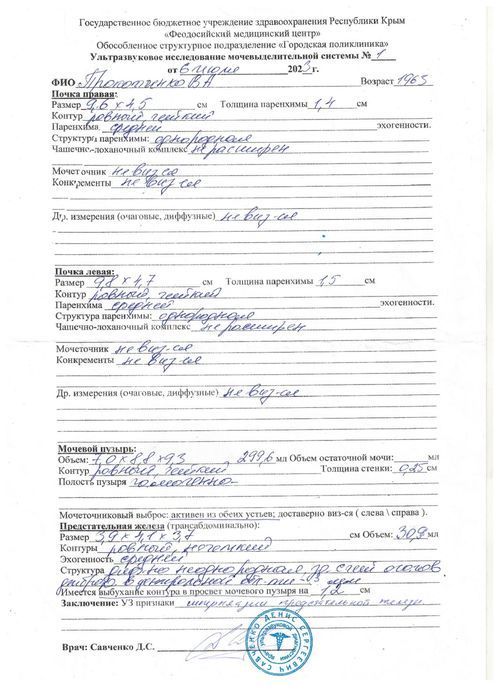 Государственное бюджетное учреждение здравоохранения Республики Крым
«Феодосийский медицинский центр»
Обособленное структурное подразделение «Городская поликлиника»
Ультразвуковое исследование мочевыделительной системы № 1
от 6 июля 2023 г.
ФИО В А Возраст 1965
Почка правая:
Размер 9,6 х 4,5 см Толщина паренхимы 1,4 см
Контур ровный, четкий
Паренхима средней эхогенности.
Структура паренхимы: однородная
Чашечно-лоханочный комплекс не расширен
Мочеточник не виз-ся
Конкременты не виз-ся
Др. измерения (очаговые, диффузные) не виз-ся
Почка левая:
Размер 9,8 х 4,7 см Толщина паренхимы 1,5 см
Контур ровный, четкий
Паренхима средней эхогенности.
Структура паренхимы: однородная
Чашечно-лоханочный комплекс не расширен
Мочеточник не виз-ся
Конкременты не виз-ся
Др. измерения (очаговые, диффузные) не виз-ся
Мочевой пузырь:
Объем: 7,0 х 8,8 х 9,3 299,6 мл Объем остаточной мочи: мл
Контур ровный, четкий Толщина стенки: 0,25 см
Полость пузыря гомогенно
Мочеточниковый выброс: активен из обеих устьев; доставерно виз-ся ( слева \ справа ).
Предстательная железа (трансабдоминально):
Размер 3,9 х 4,1 х 3,7 см Объем: 30,9 мл
Контуры ровный, нечеткий
Эхогенность средней
Структура неоднородная,
Имеется выбухание контура в просвет мочевого пузыря на 1,2 см
Заключение: УЗ признаки предстательной железы
Врач: Савченко Д.С.
САВЧЕНКО ДЕНИС СЕРГЕЕВИЧ